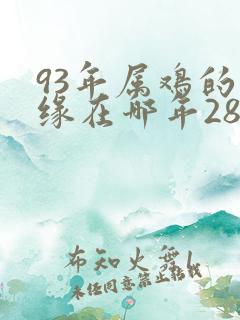 93年属鸡的
缘在哪年28
布知火舞l
未经同意禁止转载